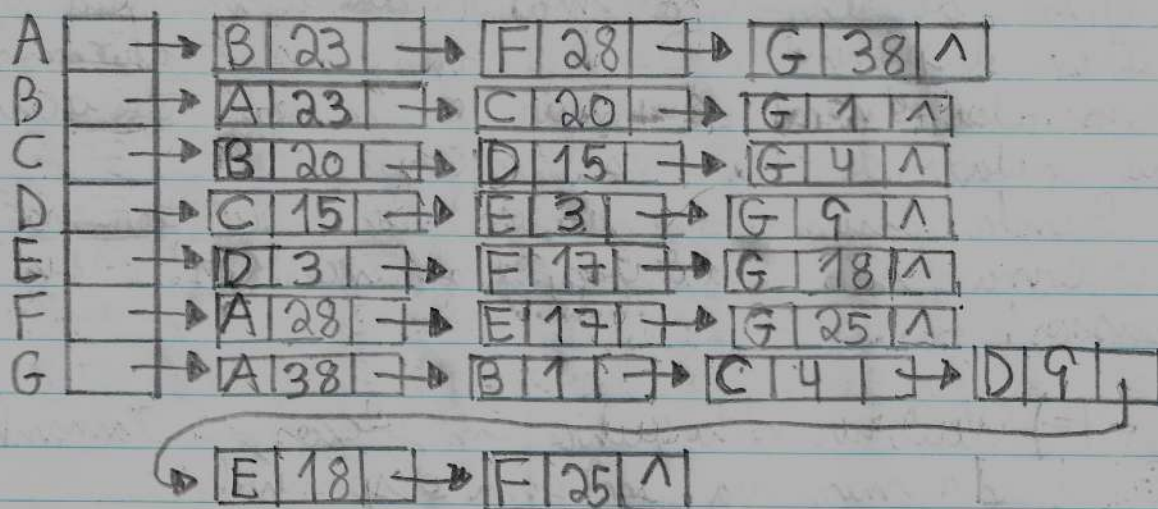 A B 23 F 28 G 38 ^
B A 23 C 20 G 1 ^
C B 20 D 15 G 4 ^
D C 15 E 3 G 9 ^
E D 3 F 17 G 18 ^
F A 28 E 17 G 25 ^
G A 38 B 1 C 4 D 9
E 18 F 25 ^